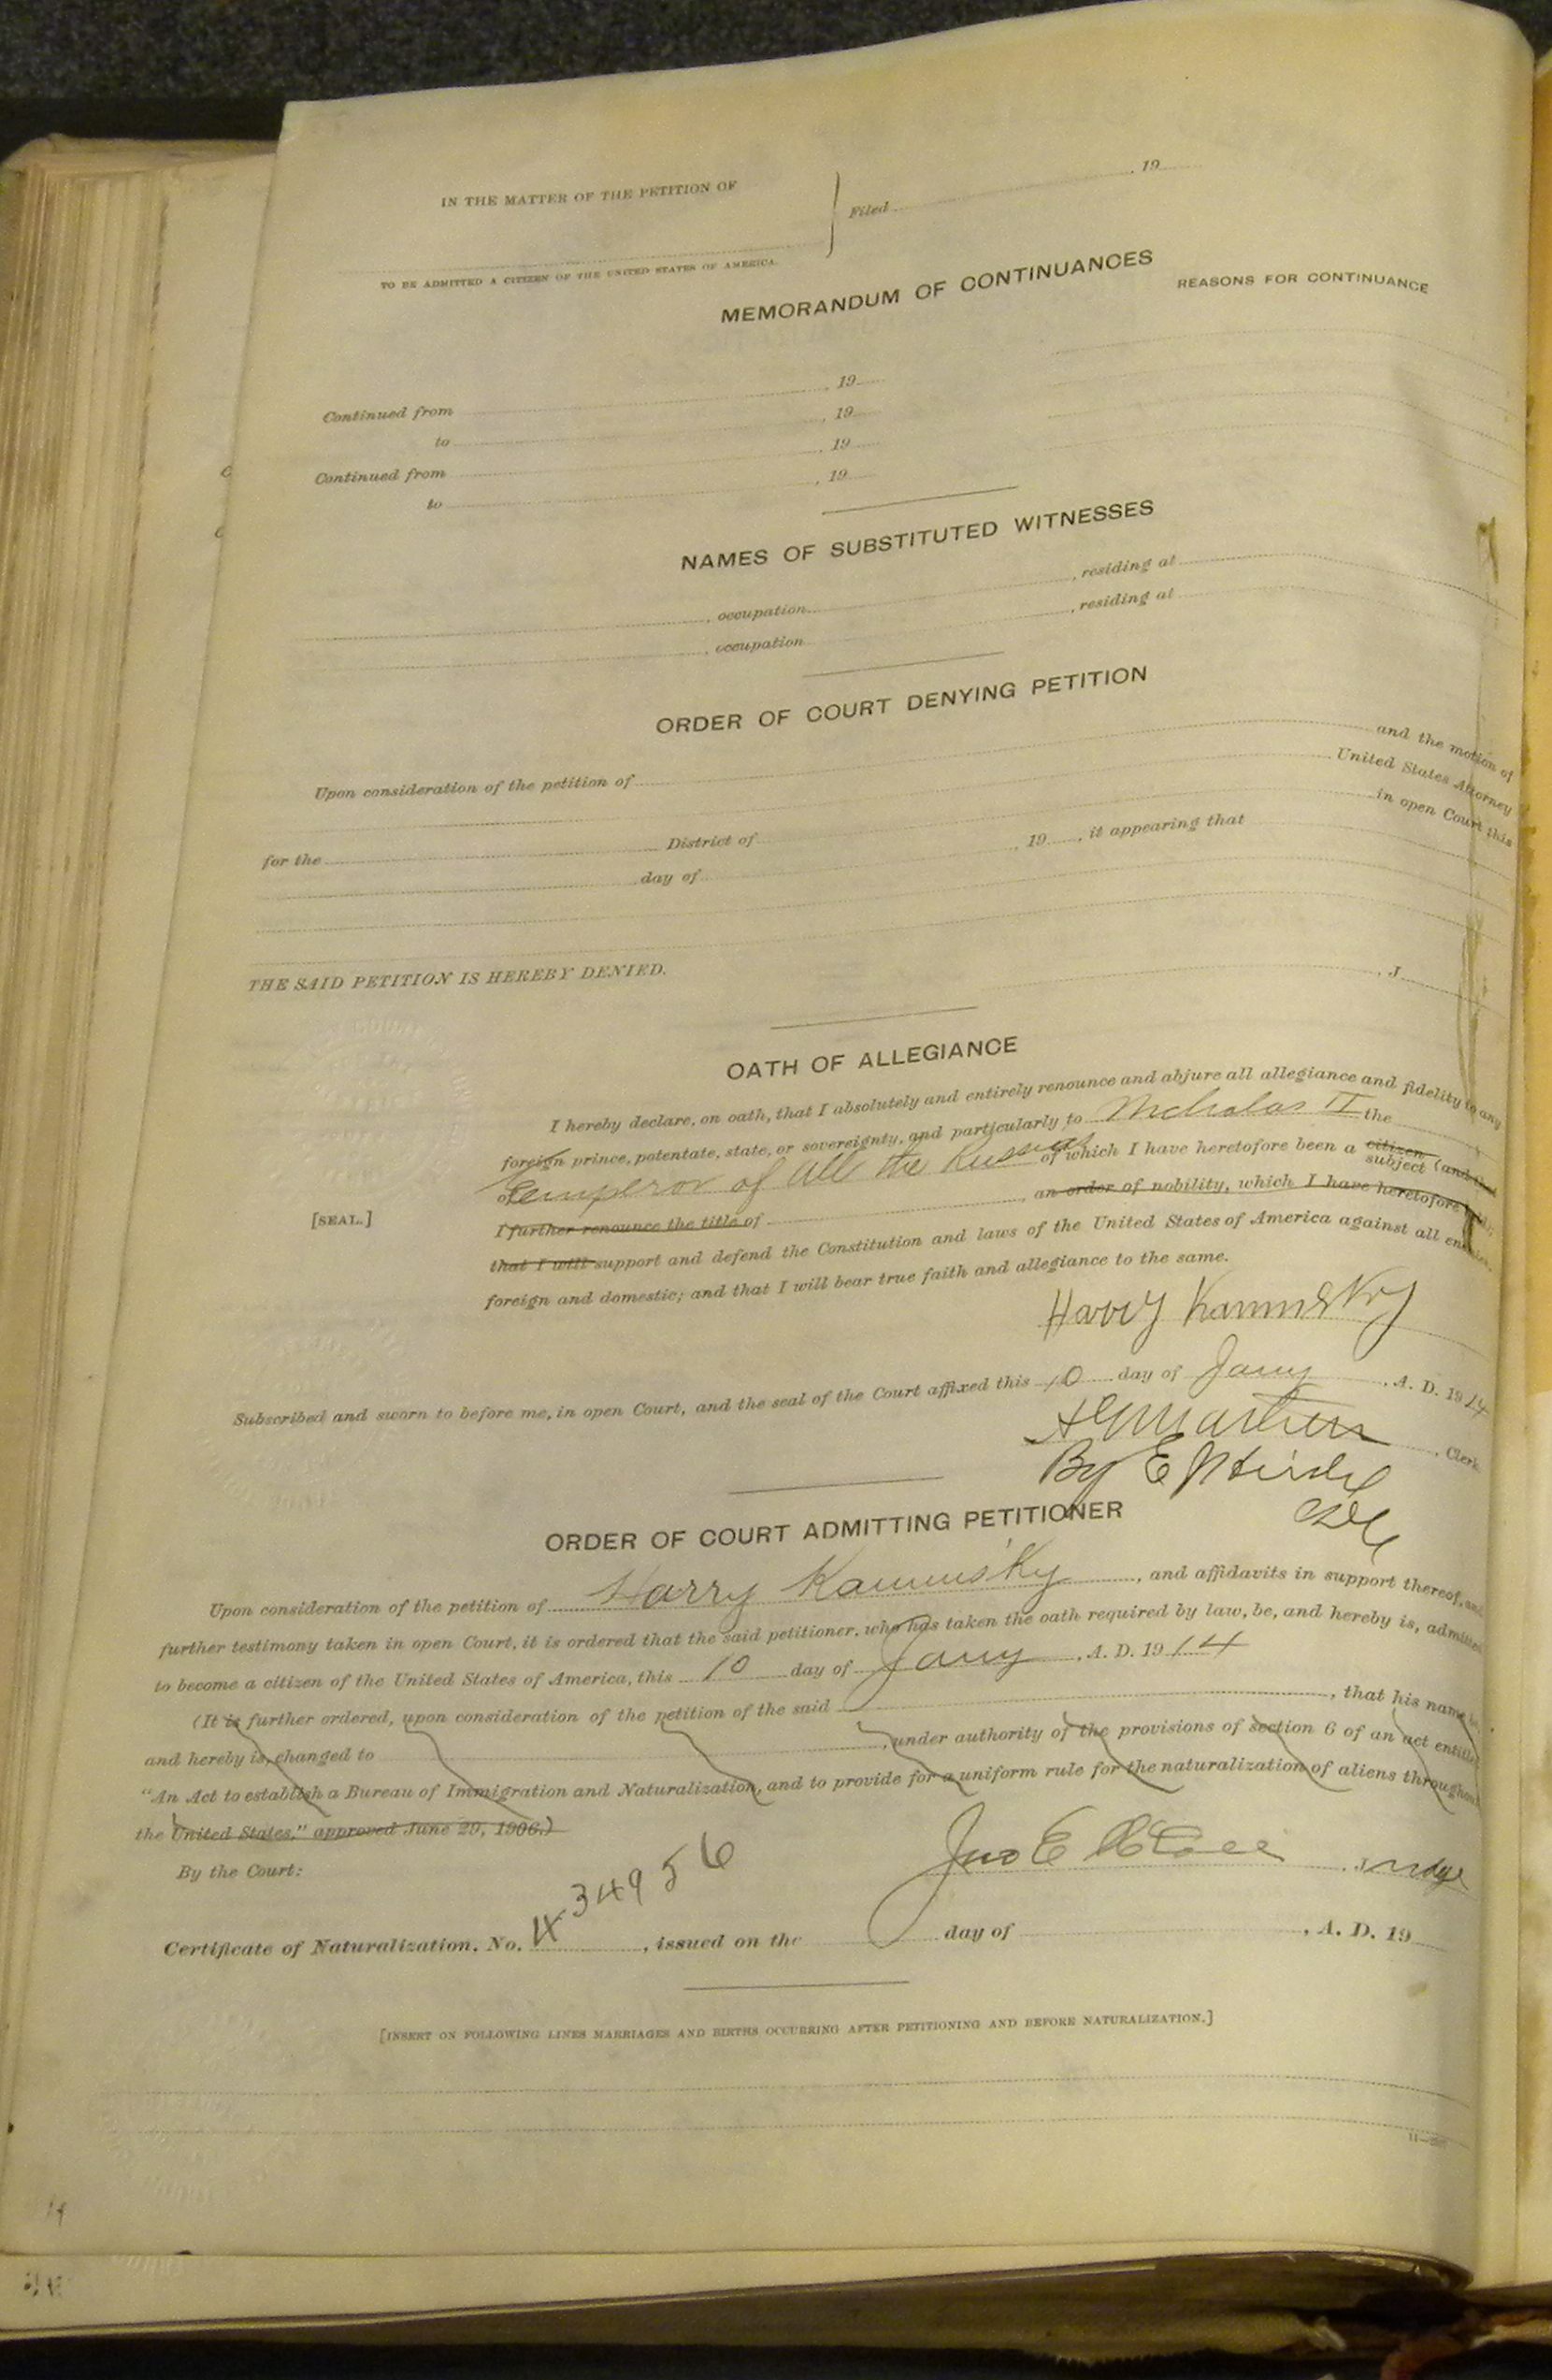 IN THE MATTER OF THE PETITION OF
Filed , 19
TO BE ADMITTED A CITIZEN OF THE UNITED STATES OF AMERICA.
MEMORANDUM OF CONTINUANCES
REASONS FOR CONTINUANCE
Continued from , 19
to , 19
Continued from , 19
to , 19
NAMES OF SUBSTITUTED WITNESSES
, occupation , residing at
, occupation , residing at
ORDER OF COURT DENYING PETITION
Upon consideration of the petition of and the motion of
United States Attorney
for the District of in open Court this
day of , 19 , it appearing that
THE SAID PETITION IS HEREBY DENIED.
, J
OATH OF ALLEGIANCE
I hereby declare, on oath, that I absolutely and entirely renounce and abjure all allegiance and fidelity to any
foreign prince, potentate, state, or sovereignty, and particularly to Nicholas II the
Emperor of All the Russias of which I have heretofore been a citizen subject (and that
I further renounce the title of , an order of nobility, which I have heretofore
that I will support and defend the Constitution and laws of the United States of America against all enemies,
foreign and domestic; and that I will bear true faith and allegiance to the same.
[SEAL.]
Harry Kaminsky
Subscribed and sworn to before me, in open Court, and the seal of the Court affixed this 10 day of Jany , A. D. 1914
, Clerk.
By E
ORDER OF COURT ADMITTING PETITIONER
Upon consideration of the petition of Harry Kaminsky , and affidavits in support thereof, and
further testimony taken in open Court, it is ordered that the said petitioner, who has taken the oath required by law, be, and hereby is, admitted
to become a citizen of the United States of America, this 10 day of Jany , A. D. 1914
(It is further ordered, upon consideration of the petition of the said , that his name be,
and hereby is, changed to , under authority of the provisions of section 6 of an act entitled
"An Act to establish a Bureau of Immigration and Naturalization, and to provide for a uniform rule for the naturalization of aliens throughout
the United States," approved June 29, 1906.)
By the Court:
Jno E , Judge
Certificate of Naturalization, No. 434956 , issued on the day of , A. D. 19
[INSERT ON FOLLOWING LINES MARRIAGES AND BIRTHS OCCURRING AFTER PETITIONING AND BEFORE NATURALIZATION.]